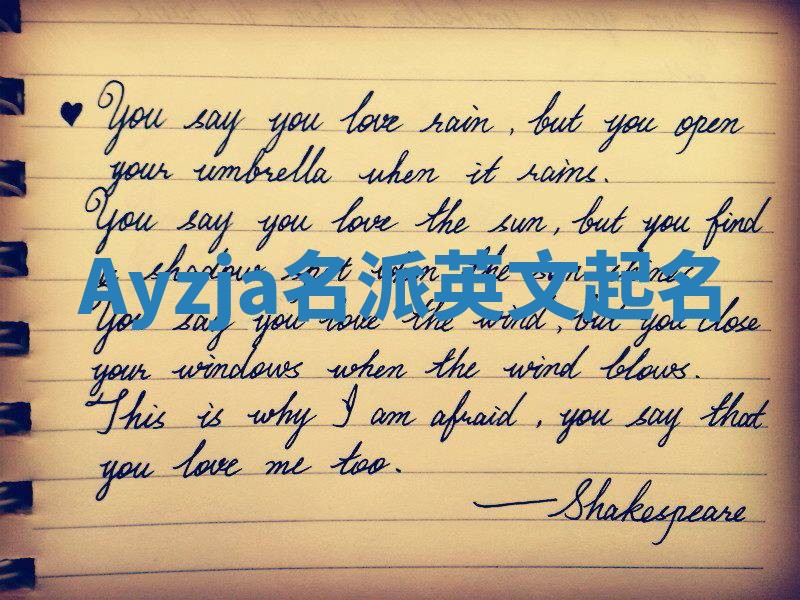 ♥ You say you love rain, but you open
your umbrella when it rains.
You say you love the sun, but you find
a shadow spot when the sun shines.
Ayzja名派英文起名
You say you love the wind, but you close
your windows when the wind blows.
This is why I am afraid, you say that
you love me too.
—Shakespeare